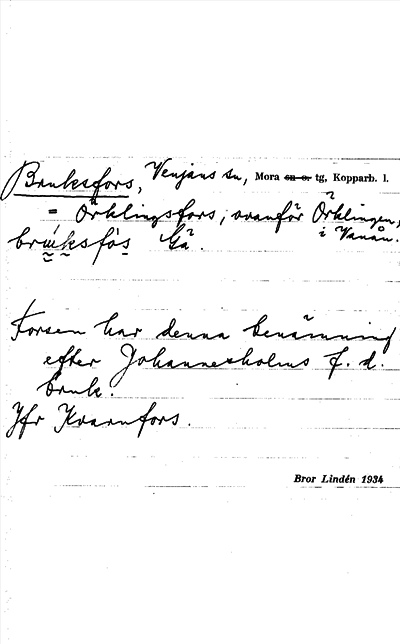 Bruksfors, Venjans sn, Mora sn o. tg, Kopparb. l.
= Örklingsfors, ovanför Örklingen,
i Vanån.
bruksfo̊s
Forsen har denna benämning
efter Johannesholms f. d.
bruk.
Jfr Kvarnfors.
Bror Lindén 1934